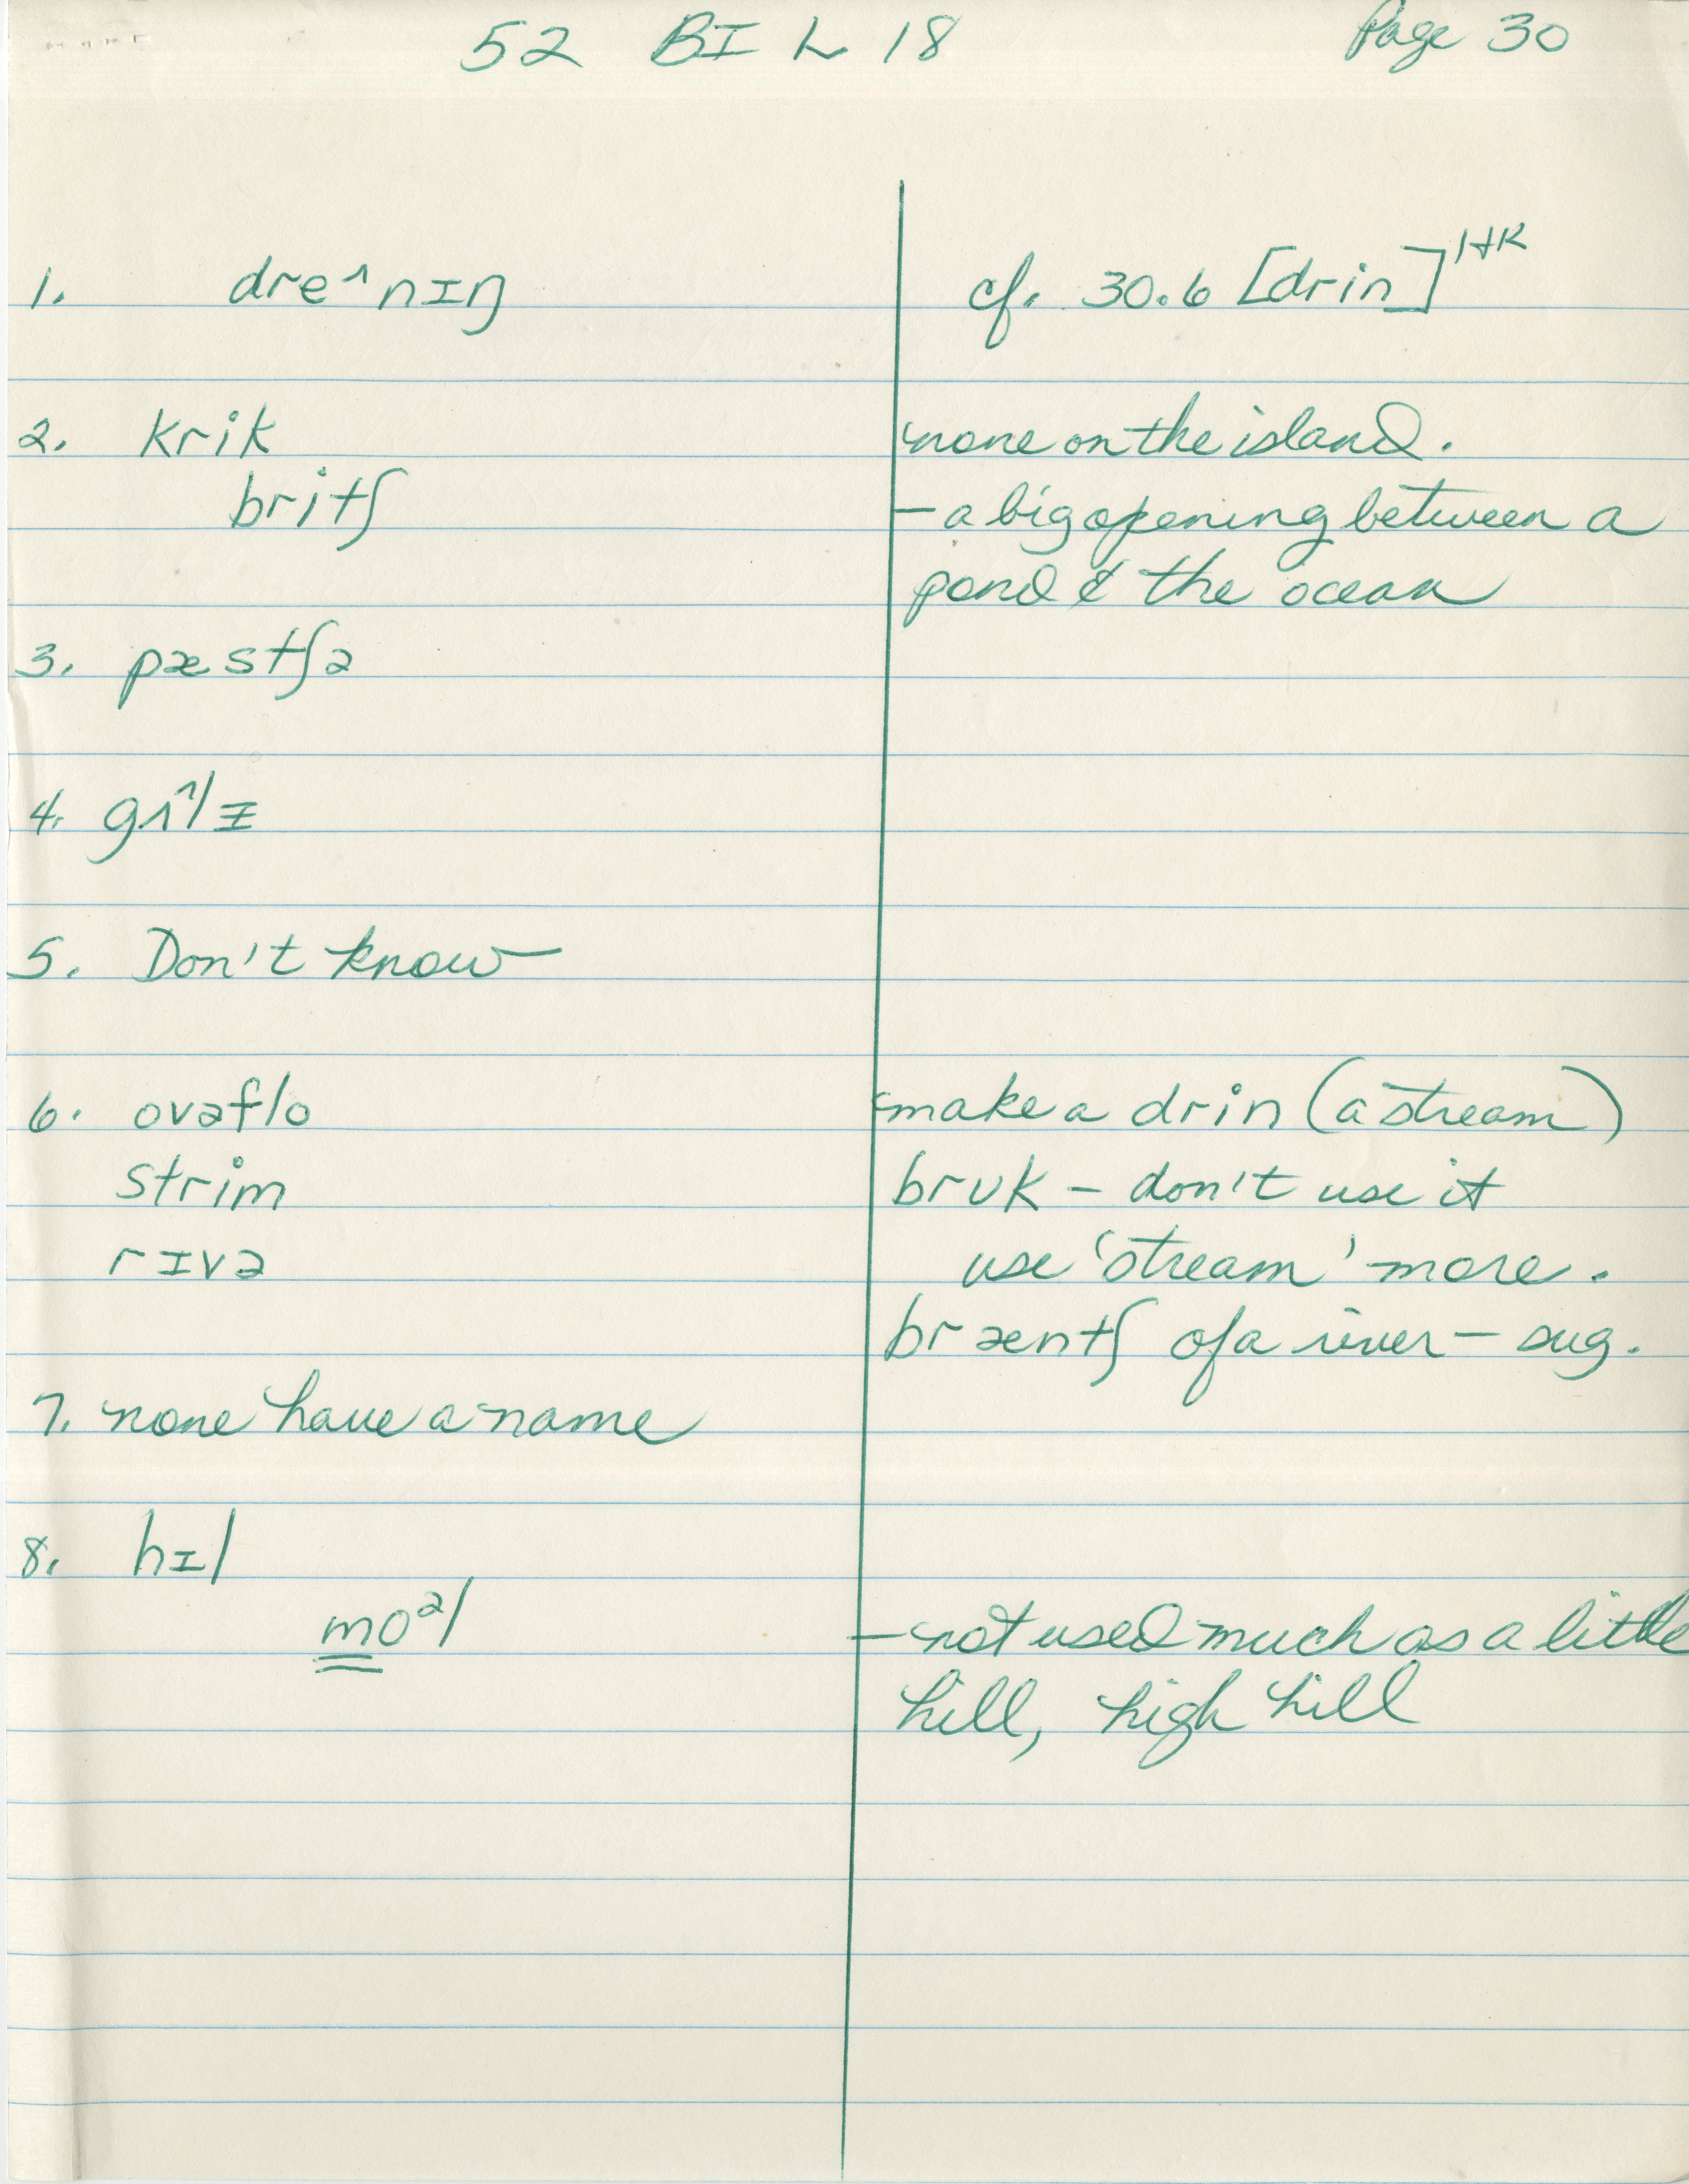 52 BI L 18 Page 30
1. dre^nɪŋ cf. 30.6 [drin] HR
2. krik none on the island.
britʃ - a big opening between a
pond & the ocean
3. pæstʃə
4. gʌ^lɪ
5. Don't know
6. ovəflo make a drin (a stream)
strim brʊk - don't use it
rɪvə use 'stream' more.
bræntʃ of a river - sug.
7. none have a name
8. hɪl
moᵊl - not used much as a little
hill, high hill